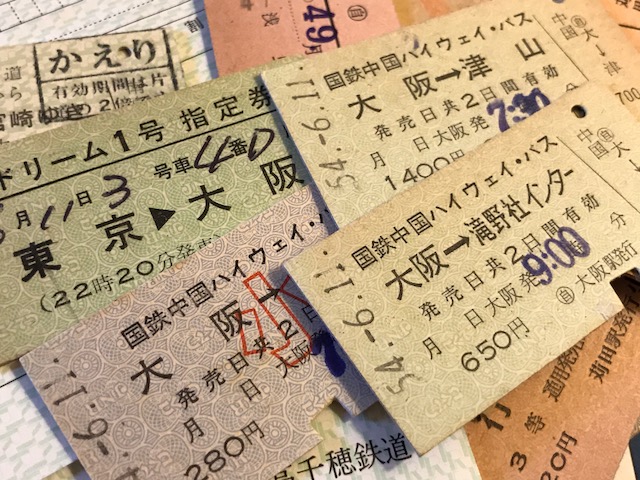 かえり
有効期間は片
宮崎ゆき
ドリーム1号 指定券
月11日3号車40番
東京▶大阪
(22時20分発車)
49
月
国鉄中国ハイウェイ・バス
大阪→津山
発売日共2日間有効
月 日大阪発 7:30
1400円
中国
大→津
700
国鉄中国ハイウェイ・バス
大阪→滝野社インター
発売日共2日間有効
月 日大阪発 9:00 分
650円
自 大阪駅発行
中国
大
54.-6.11
国鉄中国ハイウェイ・バ
大阪→
小
発売日共2日
月 日大阪発
280円
高千穂鉄道
3等
苅田駅発行
20円